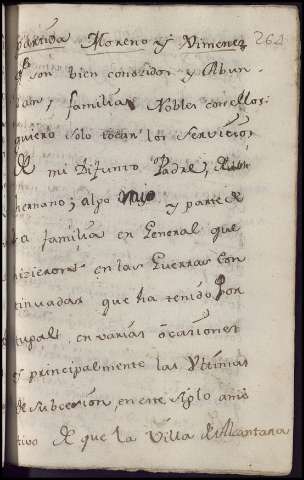 partida Moreno y Ximenez 264
q son bien conozidos y Abun-
dan, familias Nobles con ellos:
quiero solo tocar los servicios
de mi Difunto Padre,
hermano; algo mio y parte de
la familia en General que
hizieron en las Guerras con
tinuadas que ha tenido Por
tugal, en varias ocasiones
y principalmente las Vltimas
de subcesion, en este siglo
tivo de que la Villa de Alcantara